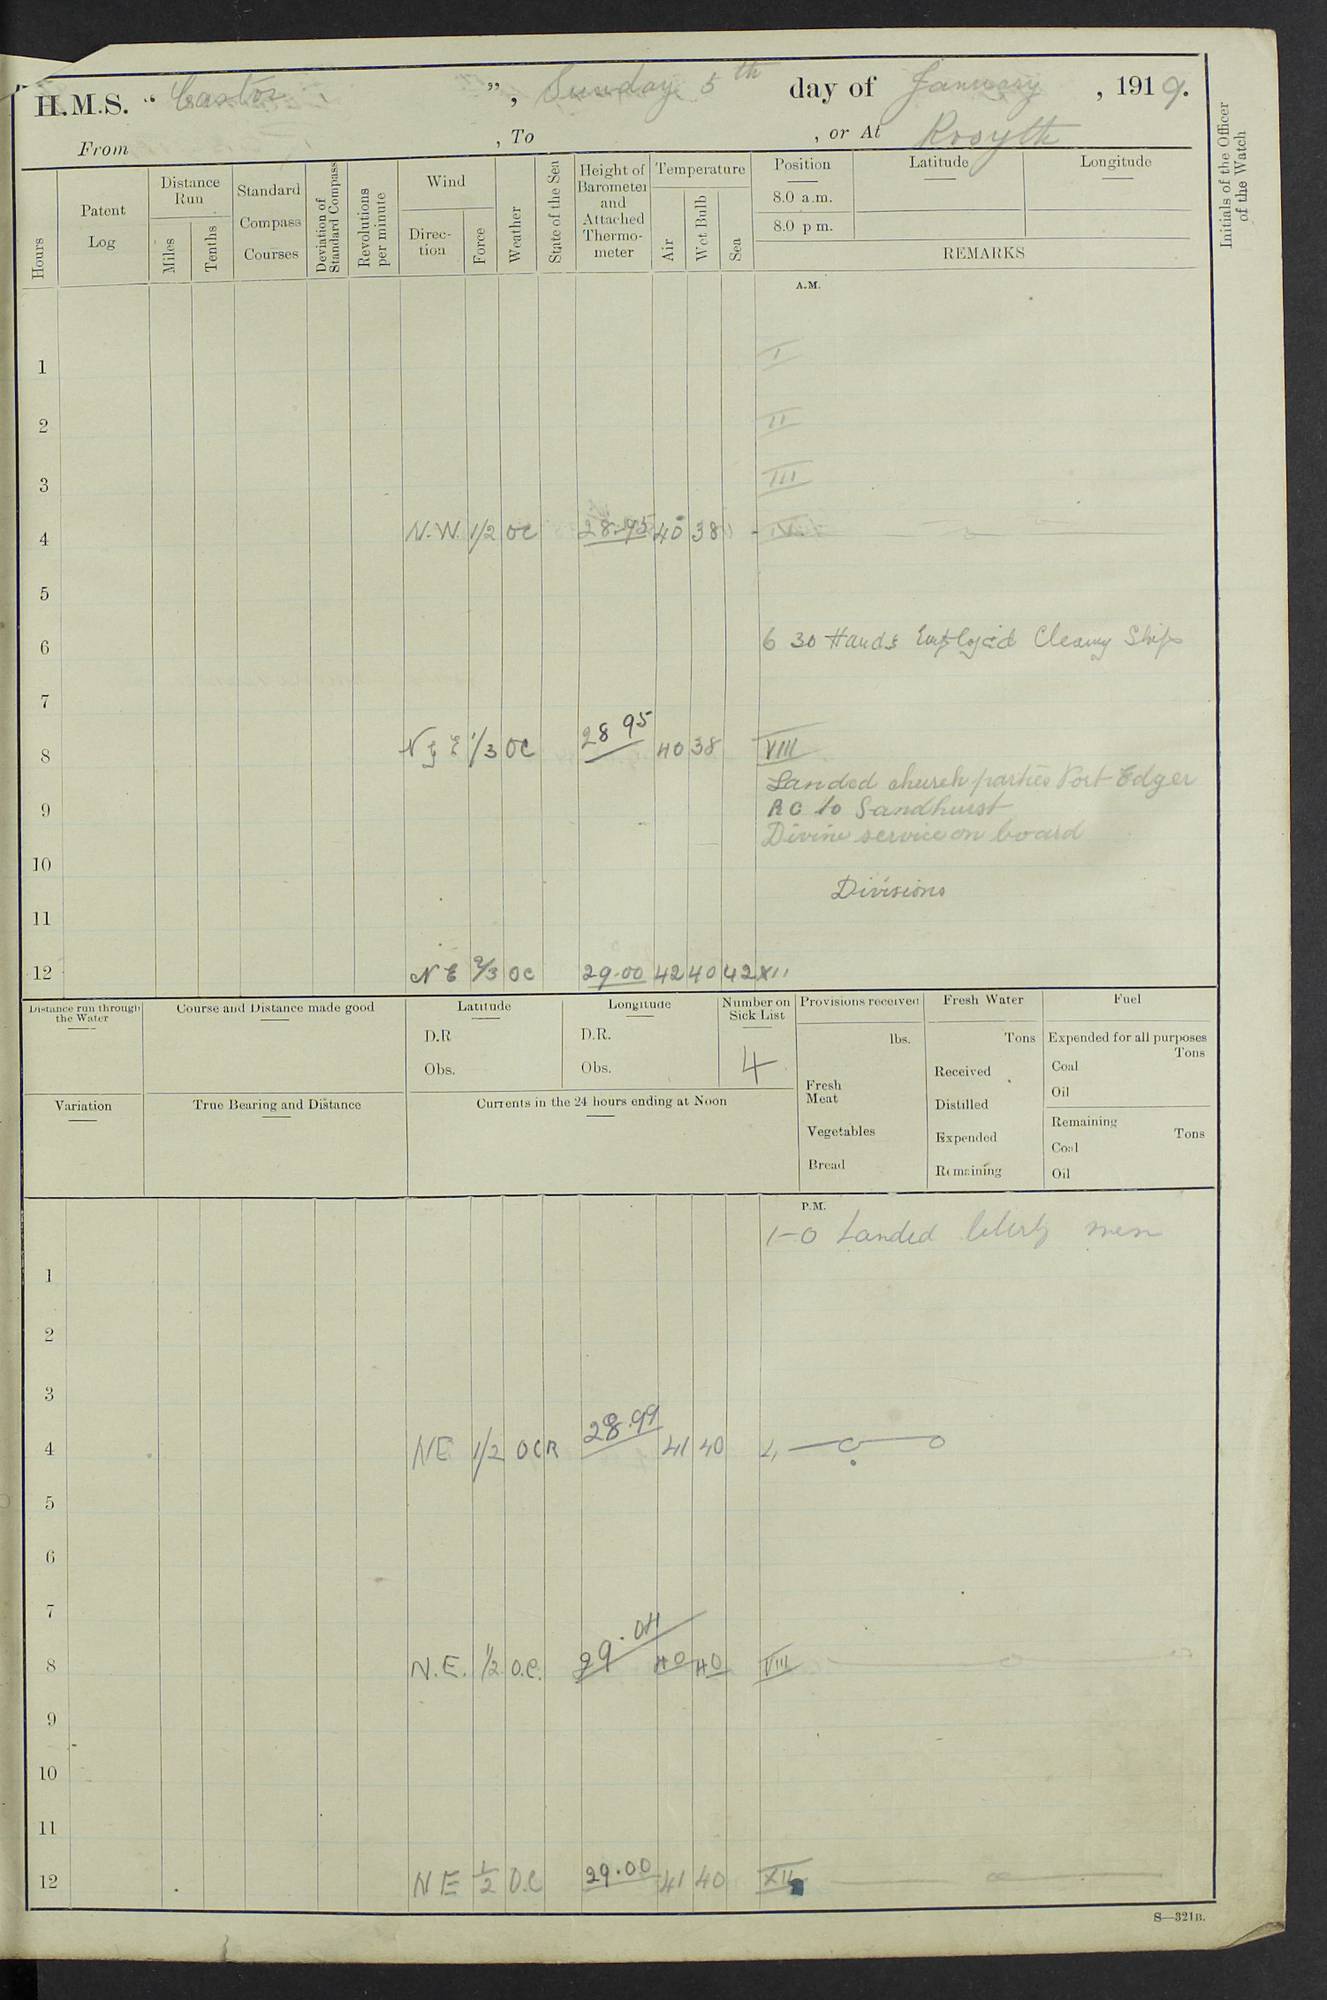 H.M.S. "Castor", Sunday 5th day of January, 1919.
From , To , or At Rosyth
Initials of the Officer of the Watch
Hours
Patent Log
Distance Run
Miles
Tenths
Standard Compass Courses
Deviation of Standard Compass
Revolutions per minute
Wind
Direction
Force
Weather
State of the Sea
Height of Barometer and Attached Thermo-meter
Temperature
Air
Wet Bulb
Sea
Position
8.0 a.m.
8.0 p m.
Latitude
Longitude
REMARKS
A.M.
1 I
2 II
3 III
4 N.W. 1/2 OC 28.95 40 38 IV
5
6 6 30 Hands Employed Cleaning Ship
7
8 N by E 1/3 OC 28 95 40 38 VIII
Landed church parties Port Edger
9 RC to Sandhurst
Divine service on board
10
Divisions
11
12 NE 2/3 OC 29.00 42 40 42 XII
Distance run through the Water
Course and Distance made good
Latitude
D.R
Obs.
Longitude
D.R.
Obs.
Number on Sick List
4
Provisions received
lbs.
Fresh Meat
Vegetables
Bread
Fresh Water
Tons
Received
Distilled
Expended
Remaining
Fuel
Expended for all purposes
Tons
Coal
Oil
Remaining
Tons
Coal
Oil
Variation
True Bearing and Distance
Currents in the 24 hours ending at Noon
P.M.
1-0 Landed liberty men
1
2
3
4 NE 1/2 OCR 28.99 41 40
5
6
7
8 N.E. 1/2 O.C. 29.04 40 40 VIII
9
10
11
12 NE 1/2 O.C 29.00 41 40 XII
S—321B.